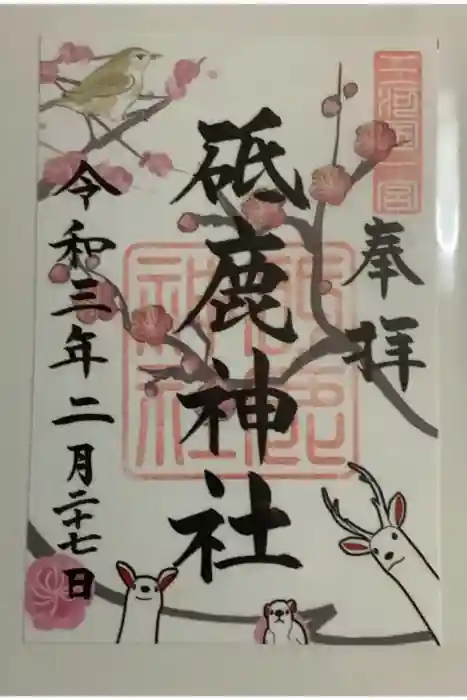 三河國一宮
奉拝
砥鹿神社
砥鹿神社
令和三年二月二十七日